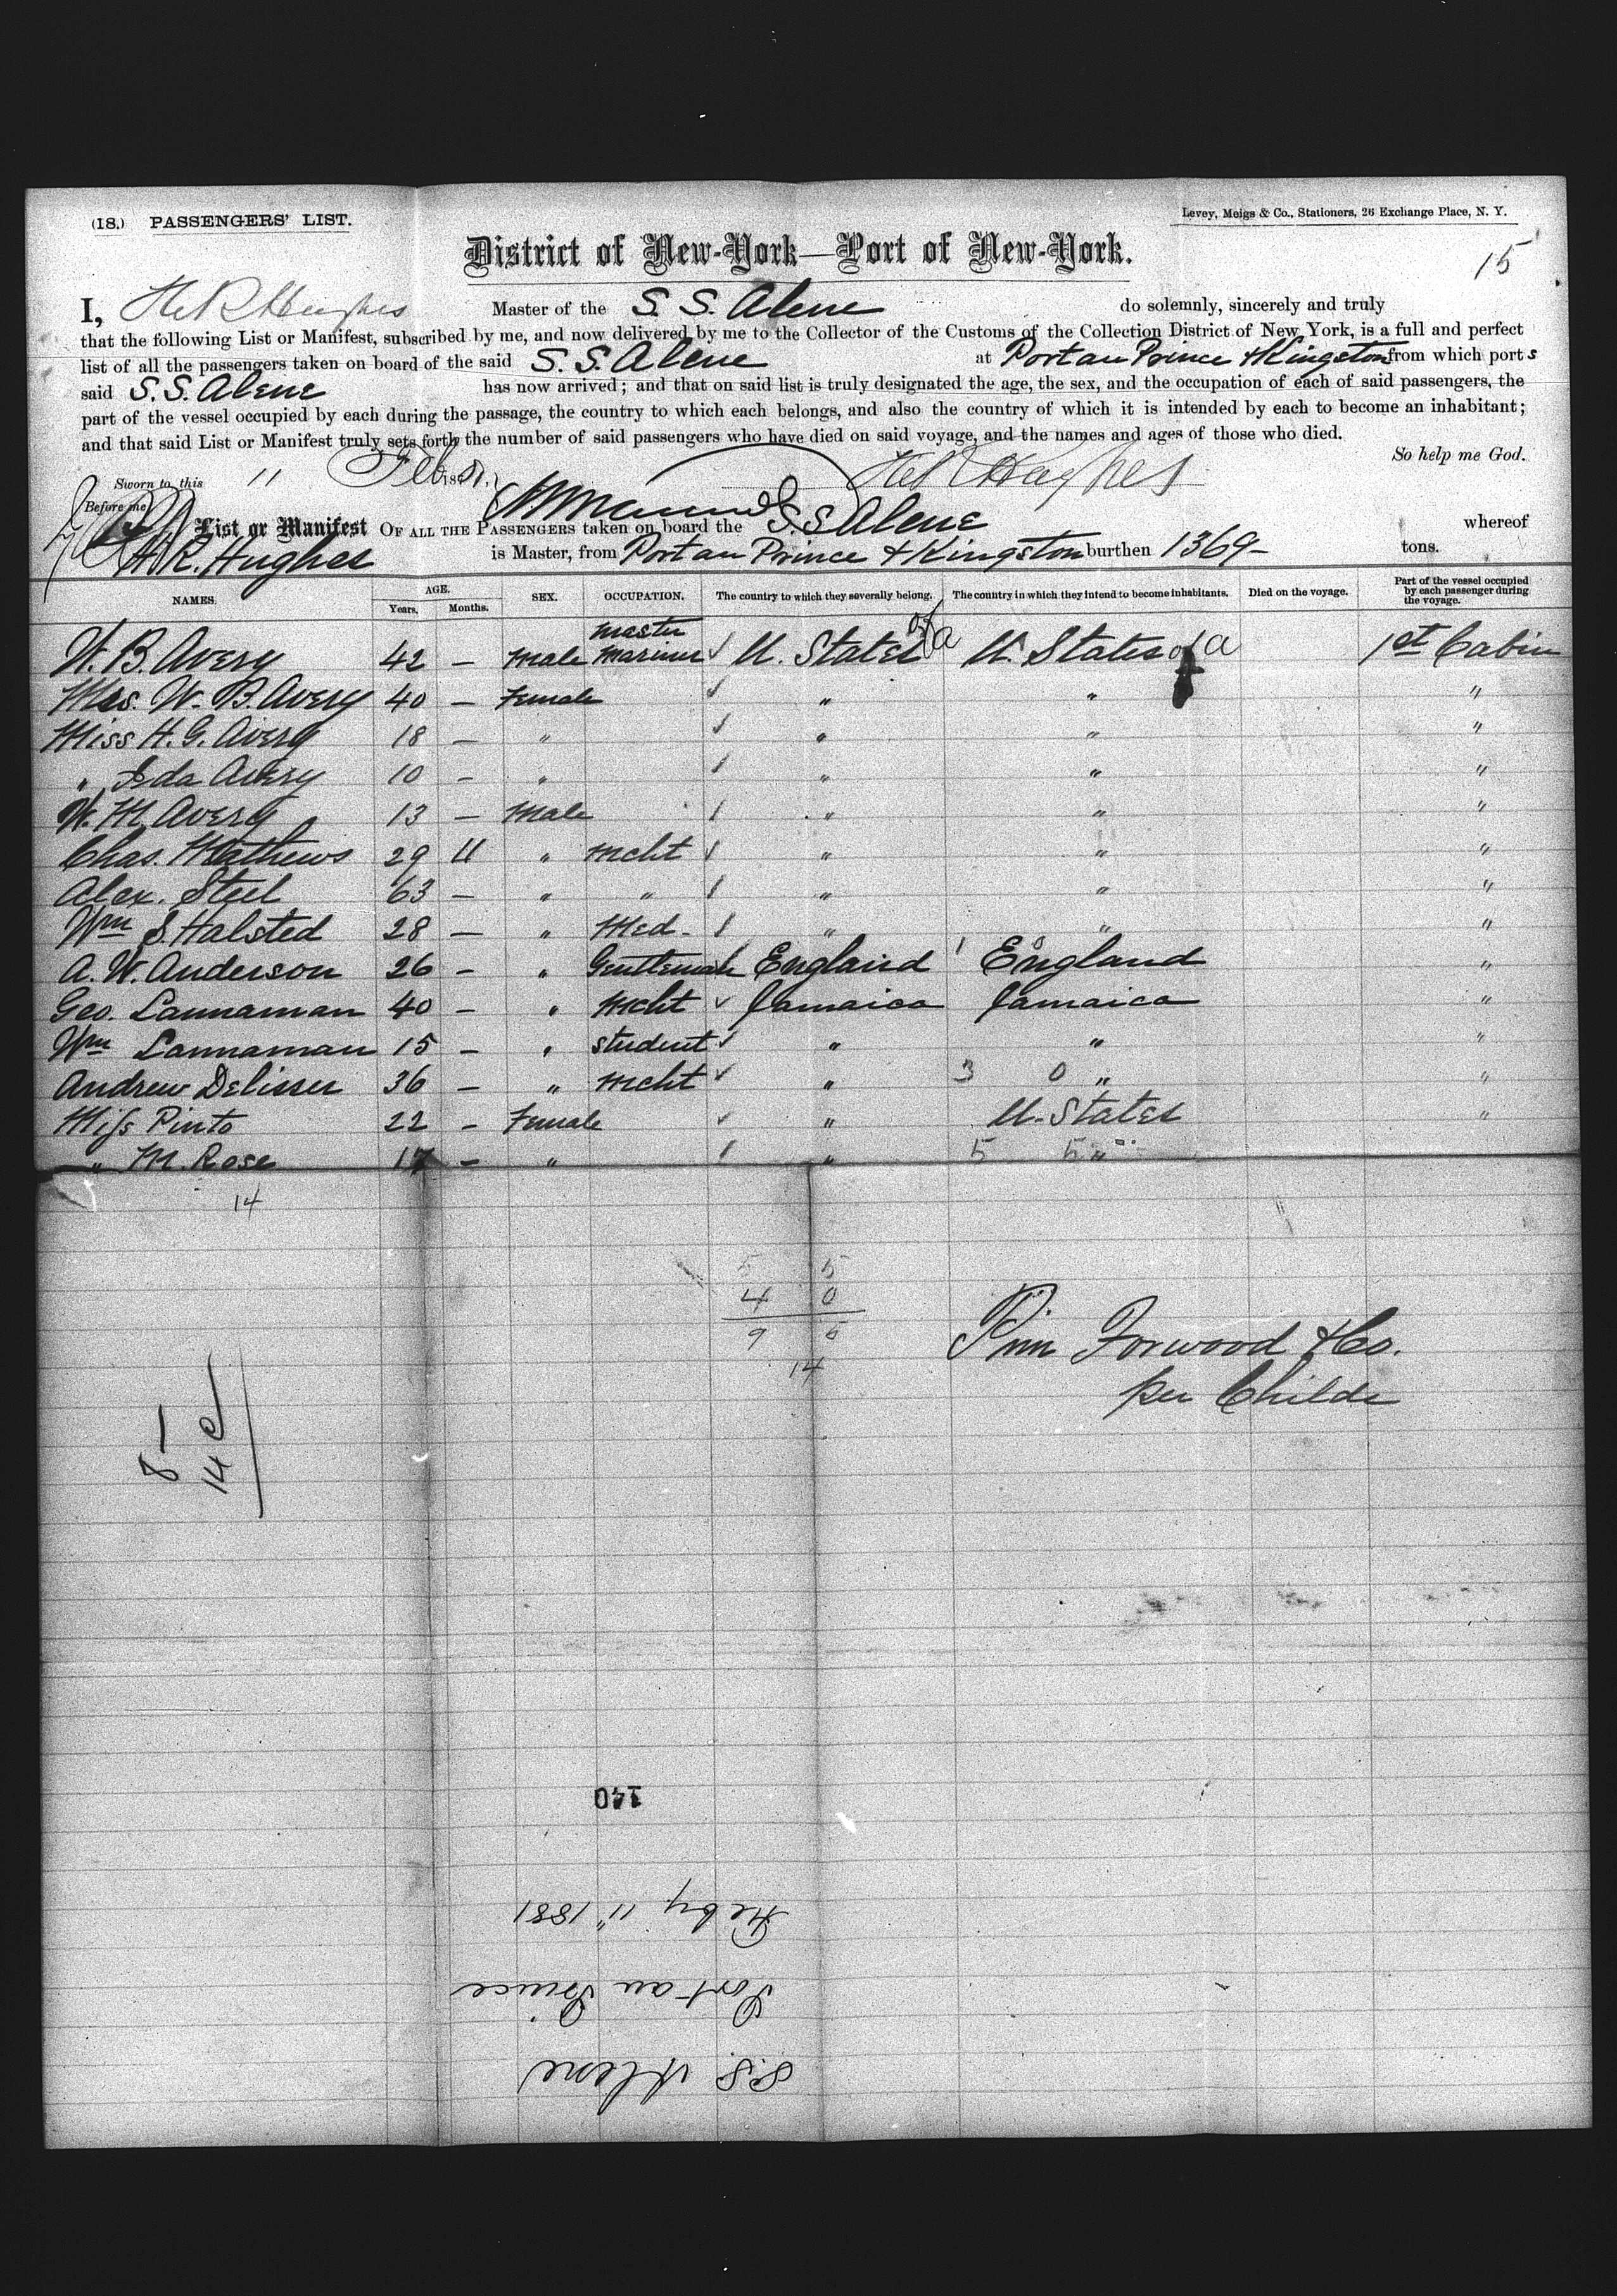 (18.) PASSENGERS' LIST.
Levey, Meigs & Co., Stationers, 26 Exchange Place, N. Y.
District of New-York—Port of New-York.
15
I, Hughes Master of the S. S. Alene do solemnly, sincerely and truly
that the following List or Manifest, subscribed by me, and now delivered by me to the Collector of the Customs of the Collection District of New York, is a full and perfect
list of all the passengers taken on board of the said S. S. Alene at Port au Prince & Kingston from which port s
said S. S. Alene has now arrived; and that on said list is truly designated the age, the sex, and the occupation of each of said passengers, the
part of the vessel occupied by each during the passage, the country to which each belongs, and also the country of which it is intended by each to become an inhabitant;
and that said List or Manifest truly sets forth the number of said passengers who have died on said voyage, and the names and ages of those who died.
So help me God.
Sworn to this 11 Feb 1881. Hughes
Before me
List or Manifest OF ALL THE PASSENGERS taken on board the S. S. Alene whereof
H. R. Hughes is Master, from Port au Prince & Kingston burthen 1369- tons.
NAMES. AGE. Years. Months. SEX. OCCUPATION. The country to which they severally belong. The country in which they intend to become inhabitants. Died on the voyage. Part of the vessel occupied by each passenger during the voyage.
W. B. Avery 42 — Male Master Mariner U. States of A U. States of A 1st Cabin
Mrs. W. B. Avery 40 — Female " " "
Miss H. G. Avery 18 — " " " "
" Ida Avery 10 — " " " "
W. M. Avery 13 — Male " " "
Chas. Mathews 29 11 " Mcht " " "
Alex. Steel 63 — " " " " "
Wm S. Halsted 28 — " Med. " " "
A. W. Anderson 26 — " Gentleman England England "
Geo. Lannaman 40 — " Mcht Jamaica Jamaica "
Wm Lannaman 15 — " Student " " "
Andrew Delisser 36 — " Mcht " 3 0 " "
Miss Pinto 22 — Female " U. States "
" M. Rose 17 — " " 5 5 "
14
5 5
4 0
9 5
14
Pim Forwood & Co.
per Childe
8 —
14 C
140
Feby 11" 1881
Port au Prince
S.S. Alene